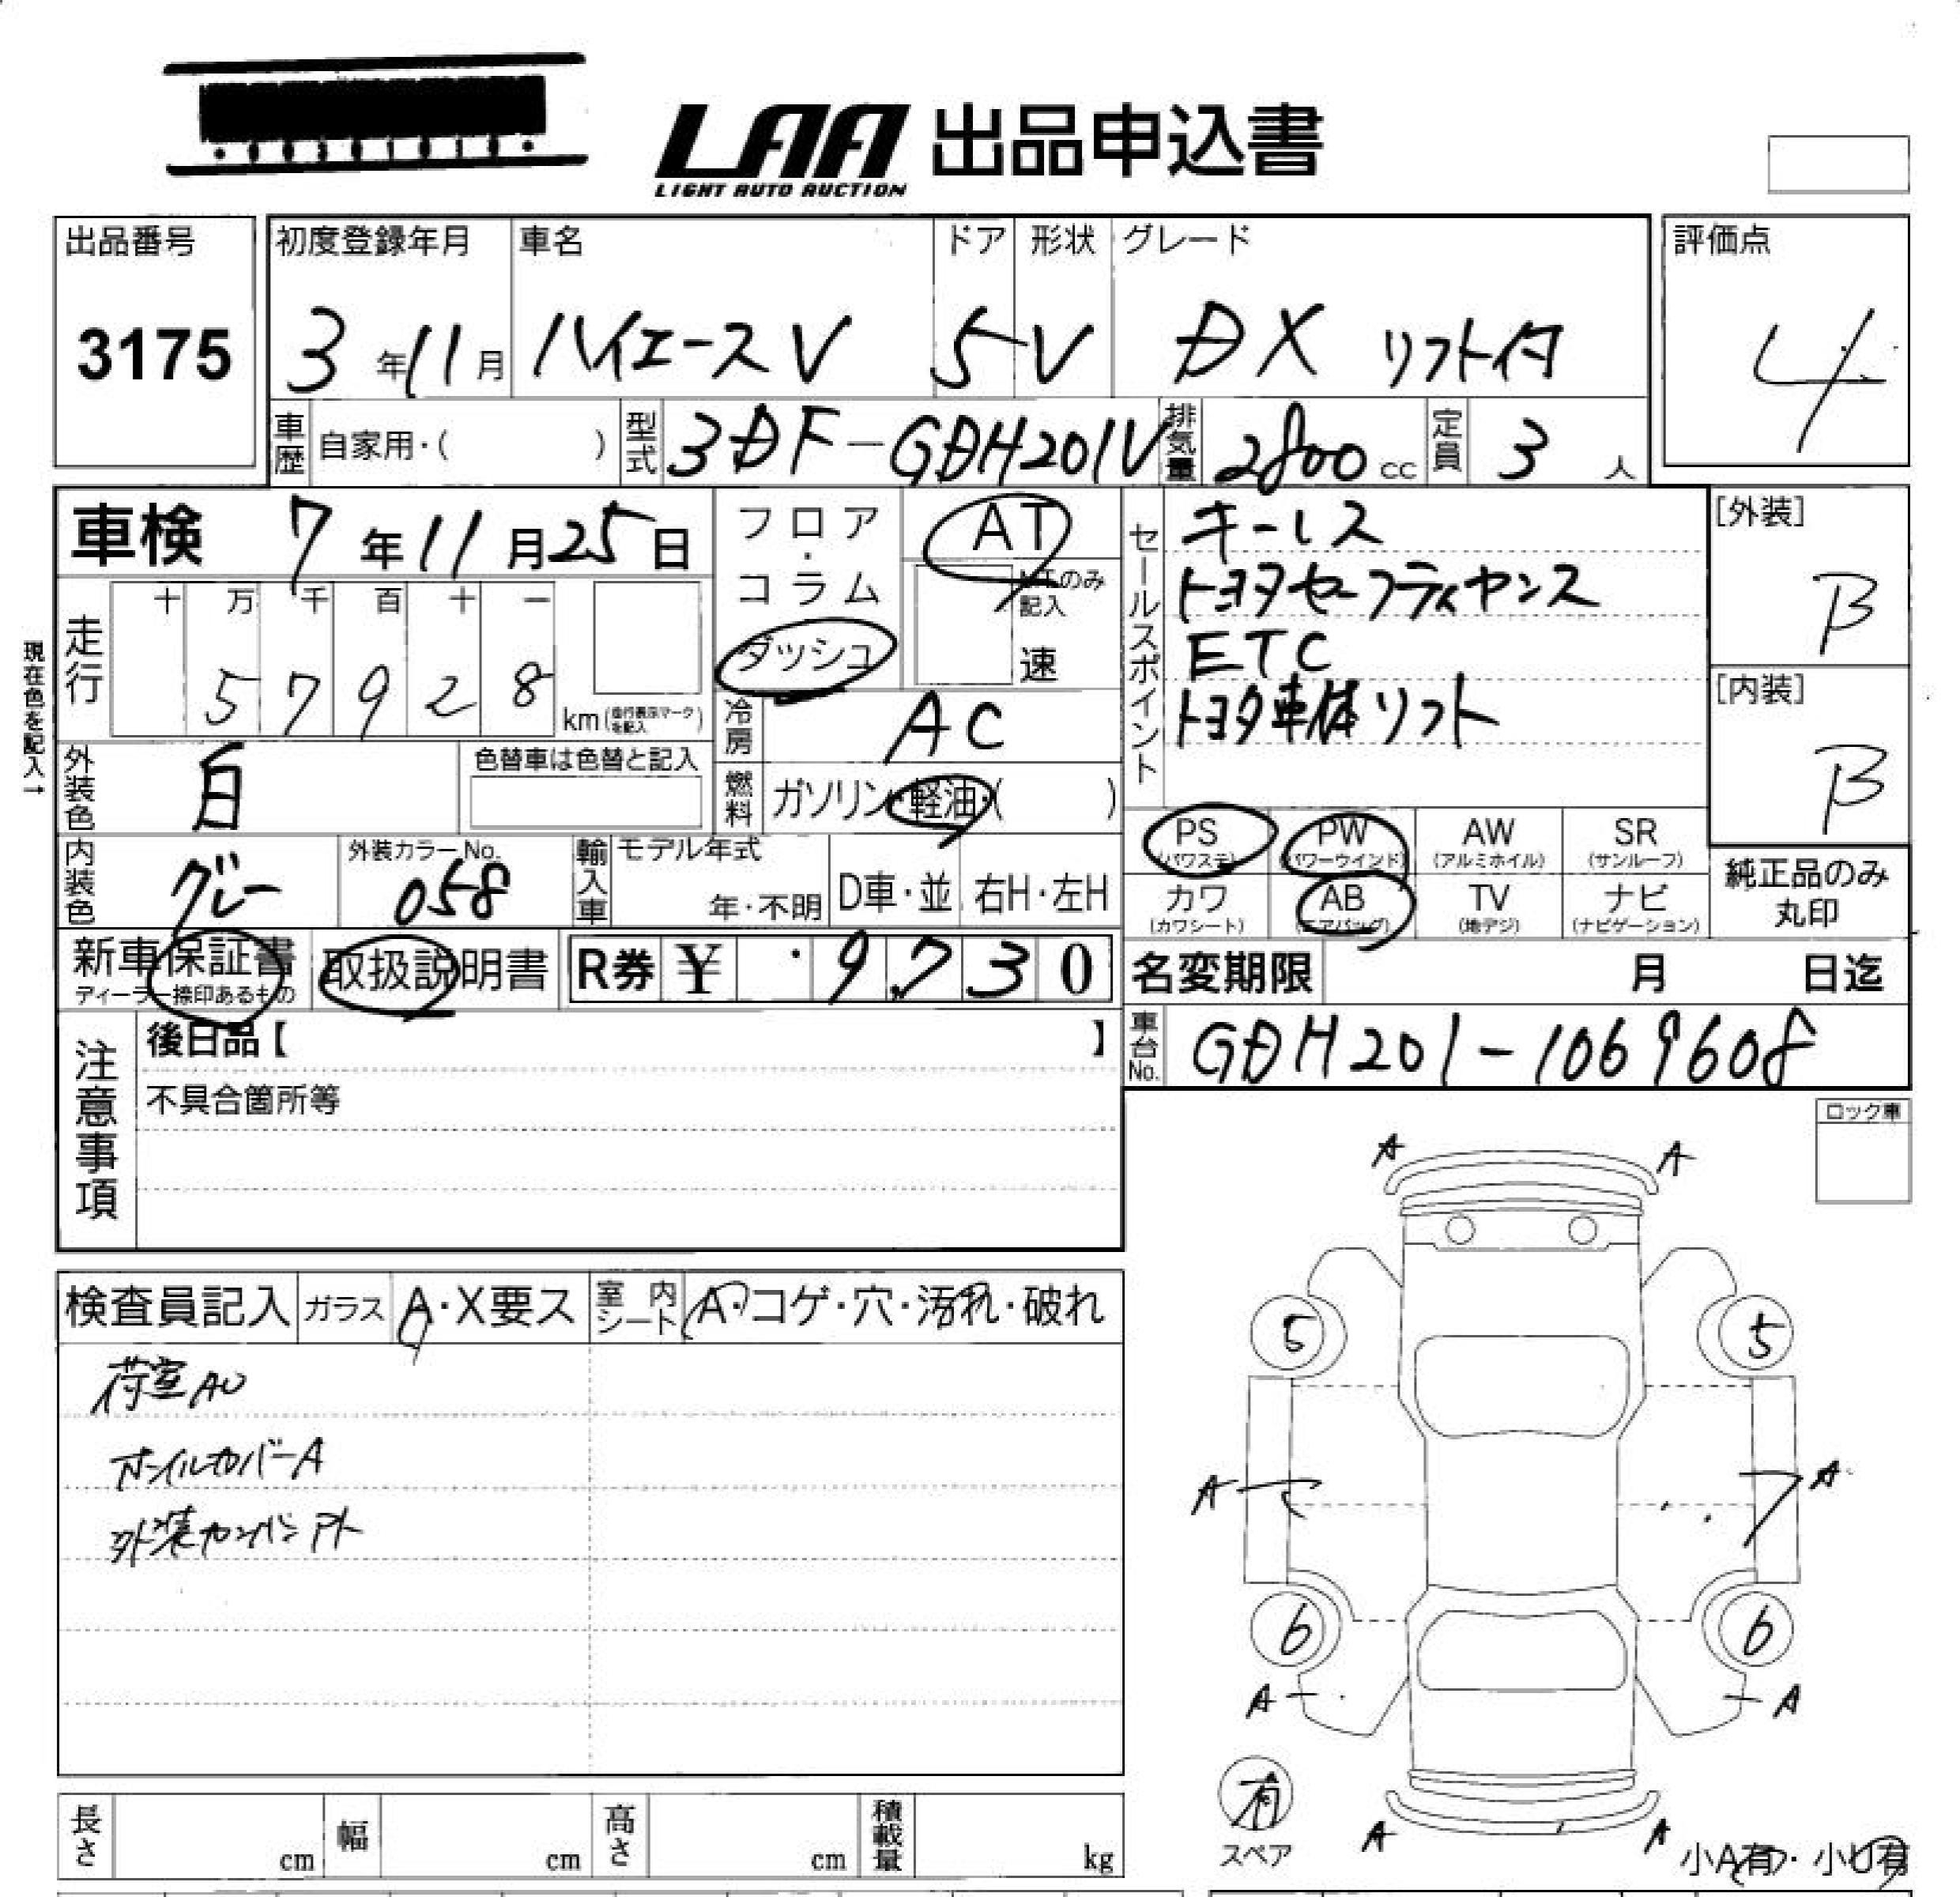 LAA 出品申込書
LIGHT AUTO AUCTION
出品番号 3175
初度登録年月 3年11月
車名 ハイエースV
ドア 5
形状 V
グレード DX リフト付
評価点 4
車歴 自家用・( )
型式 3DF-GDH201V
排気量 2800cc
定員 3人
車検 7年11月25日
フロア・コラム
ダッシュ
AT
MTのみ記入
速
セールスポイント
キーレス
トヨタセーフティセンス
ETC
トヨタ車体リフト
[外装] B
[内装] B
現在色を記入→
走行 十 万 千 百 十 一
57928 km (走行表示マークを記入)
冷房 AC
外装色 白
色替車は色替と記入
燃料 ガソリン・軽油・( )
内装色 グレー
外装カラーNo. 058
輸入車 モデル年式 年・不明
D車・並
右H・左H
PS (パワステ)
PW (パワーウインド)
AW (アルミホイル)
SR (サンルーフ)
カワ (カワシート)
AB (エアバッグ)
TV (地デジ)
ナビ (ナビゲーション)
純正品のみ丸印
新車保証書
ディーラー捺印あるもの
取扱説明書
R券 ¥ 9,730
名変期限 月 日迄
車台No. GDH201-1069608
注意事項
後日品【 】
不具合箇所等
ロック車
検査員記入
ガラス A・X要ス
室内シート A・コゲ・穴・汚れ・破れ
荷室AU
ホイルカバーA
外装カンバンアト
A A
5 5
A A
6 6
A A
有
スペア
A A
小A有・小U有
長さ cm
幅 cm
高さ cm
積載量 kg